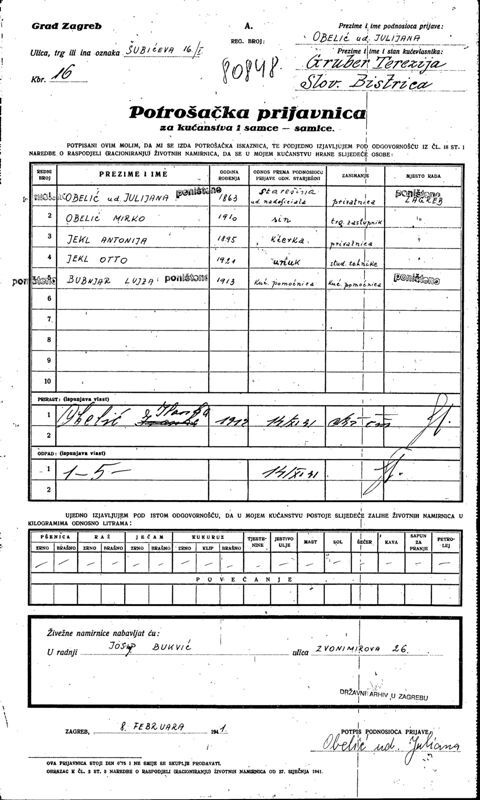 Grad Zagreb
Ulica, trg ili ina oznaka ŠUBIĆEVA 16/I
Kbr. 16
A.
REG. BROJ:
80848
Prezime i ime podnosioca prijave:
OBELIĆ ud. JULIJANA
Prezime i ime i stan kućevlasnika:
Gruber Terezija
Slov. Bistrica
Potrošačka prijavnica
za kućanstva i samce — samice.
POTPISANI OVIM MOLIM, DA MI SE IZDA POTROŠAČKA ISKAZNICA, TE PODJEDNO IZJAVLJUJEM POD ODGOVORNOŠĆU IZ ČL. 18 ST. 1
NAREDBE O RASPODJELI (RACIONIRANJU) ŽIVOTNIH NAMIRNICA, DA SE U MOJEM KUĆANSTVU HRANE SLIJEDEĆE OSOBE:
REDNI BROJ PREZIME I IME GODINA ROĐENJA ODNOS PREMA PODNOSIOCU PRIJAVE ODN. STARJEŠINI ZANIMANJE MJESTO RADA
OBELIĆ ud. JULIJANA poništeno 1863 starešina ud. privatnica ZAGREB
2 OBELIĆ MIRKO 1910 sin trg. zastupnik "
3 JEKL ANTONIJA 1895 kćerka privatnica "
4 JEKL OTTO 1921 unuk stud. tehnike "
poništeno BUBNJAR LUJZA poništeno 1913 kuć. pomoćnica kuć. pomoćnica poništeno
6
7
8
9
10
PRIRAST: (ispunjava vlast)
1 14/XI 41
2
OTPAD: (ispunjava vlast)
1 1-5- 14/XI 41
2
UJEDNO IZJAVLJUJEM POD ISTOM ODGOVORNOŠĆU, DA U MOJEM KUĆANSTVU POSTOJE SLIJEDEĆE ZALIHE ŽIVOTNIH NAMIRNICA U
KILOGRAMIMA ODNOSNO LITRAMA:
PŠENICA RAŽ JEČAM KUKURUZ TJESTENINE JESTIVO ULJE MAST SOL ŠEĆER KAVA SAPUN ZA PRANJE PETROLEJ
ZRNO BRAŠNO ZRNO BRAŠNO ZRNO BRAŠNO ZRNO KLIP BRAŠNO
POVEĆANJE
Živežne namirnice nabavljat ću:
U radnji JOSIP BUKVIĆ ulica ZVONIMIROVA 26.
DRŽAVNI ARHIV U ZAGREBU
ZAGREB, 8. FEBRUARA 1941.
POTPIS PODNOSIOCA PRIJAVE:
Obelić ud. Juliana
OVA PRIJAVNICA STOJI DIN 0'75 I NE SMIJE SE SKUPLJE PRODAVATI.
OBRAZAC K Č. 2 ST. 2 NAREDBE O RASPODJELI (RACIONIRANJU) ŽIVOTNIH NAMIRNICA OD 27. SIJEČNJA 1941.